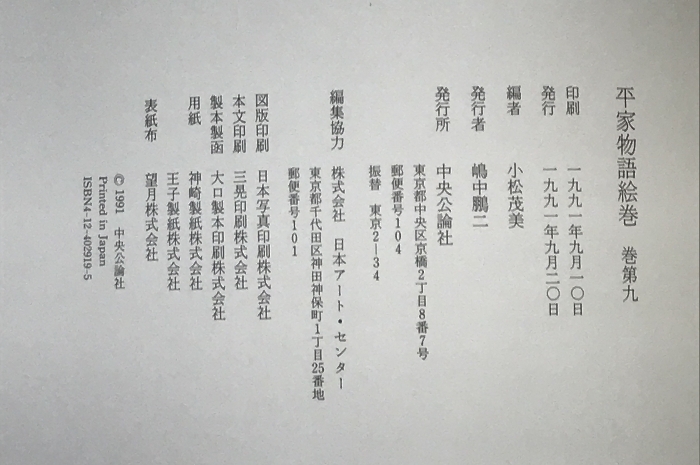 平家物語絵巻　巻第九
印刷　一九九一年九月一〇日
発行　一九九一年九月二〇日
編者　小松茂美
発行者　嶋中鵬二
発行所　中央公論社
東京都中央区京橋2丁目8番7号
郵便番号104
振替　東京2―34
編集協力　株式会社　日本アート・センター
東京都千代田区神田神保町1丁目25番地
郵便番号101
図版印刷　日本写真印刷株式会社
本文印刷　三晃印刷株式会社
製本製函　大口製本印刷株式会社
用紙　神崎製紙株式会社
王子製紙株式会社
表紙布　望月株式会社
© 1991　中央公論社
Printed in Japan
ISBN4-12-402919-5